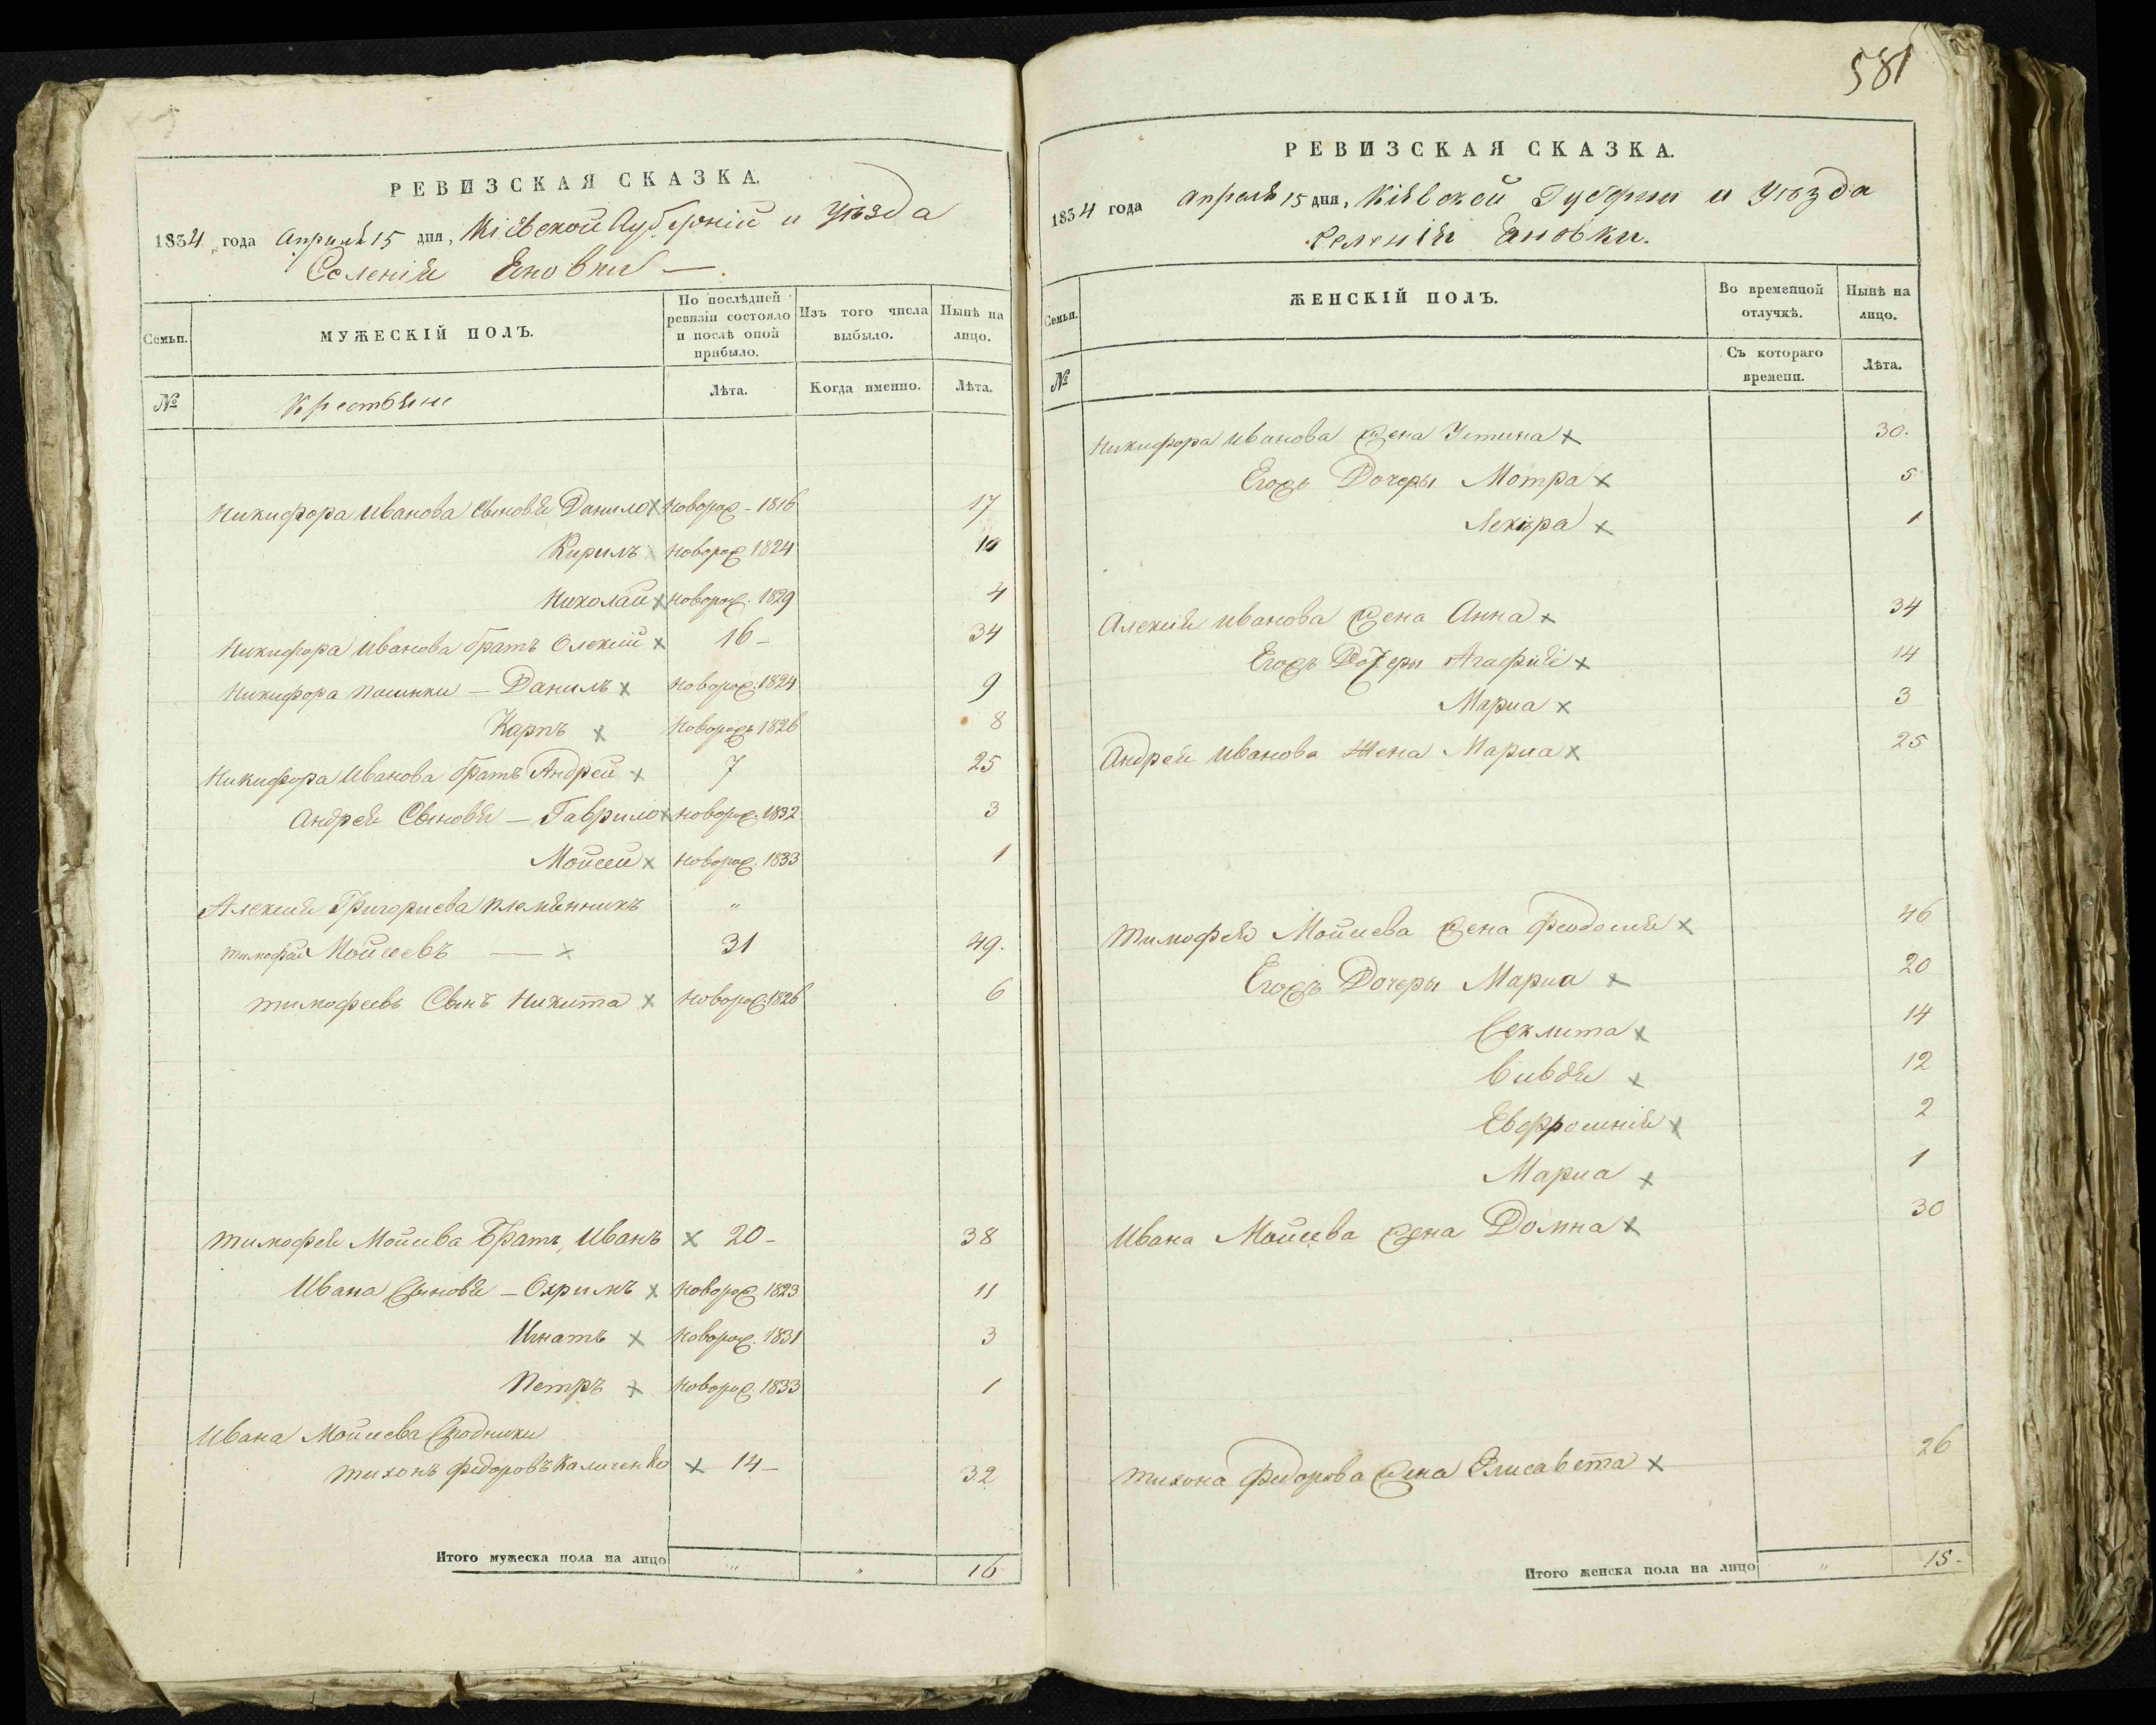 581
РЕВИЗСКАЯ СКАЗКА.
1834 года Апреля 15 дня, Кіевской Губерніи и Уѣзда
Селенія Яновки —
Семьи.
МУЖЕСКІЙ ПОЛЪ.
По послѣдней ревизіи состояло и послѣ оной прибыло.
Изъ того числа выбыло.
Нынѣ на лицо.
№
Крестьяне
Лѣта.
Когда именно.
Лѣта.
Никифора Иванова Сыновья Данило новорож - 1816 17
Кирилъ новорож 1824 10
Николай новорож. 1829 4
Никифора Иванова братъ Олексій 16 - 34
Никифора пасынки — Данилъ новорож. 1824 9
Карпъ новорожъ 1826 8
Никифора Иванова братъ Андрей 7 25
Андрея Сыновья — Гаврило новорож. 1832 3
Мойсей новорож. 1833 1
Алексея Григориева племянникъ "
Тимофей Мойсеевъ — 31 49.
Тимофеевъ Сынъ Никита новорож. 1826 6
Тимофея Мойсеева Братъ, Иванъ 20 - 38
Ивана Сыновья — Охримъ новорож 1823 11
Игнатъ новорож. 1831 3
Петръ новорож. 1833 1
Ивана Мойсеева Сродники
Тихонъ Федоровъ Каличенко 14 - 32
Итого мужеска пола на лицо " " 16
РЕВИЗСКАЯ СКАЗКА.
1834 года Апреля 15 дня, Кіевской Губерніи и Уѣзда
Селенія Яновки.
Семьи.
ЖЕНСКІЙ ПОЛЪ.
Во временной отлучкѣ.
Нынѣ на лицо.
№
Съ котораго времени.
Лѣта.
Никифора Иванова жена Устина 30.
Егожъ Дочеры Мотра 5
1
Алексія Иванова жена Анна 34
Егожъ Дочеры Агафия 14
Мариа 3
Андрея Иванова Жена Мариа 25
Тимофея Мойсеева жена Феодосия 46
Егожъ Дочеры Мариа 20
Секлита 14
Вивдя 12
Евфросинія 2
Мариа 1
Ивана Мойсеева жена Домна 30
Тихона Федорова жена Елисавета 26
Итого женска пола на лицо " 15 -